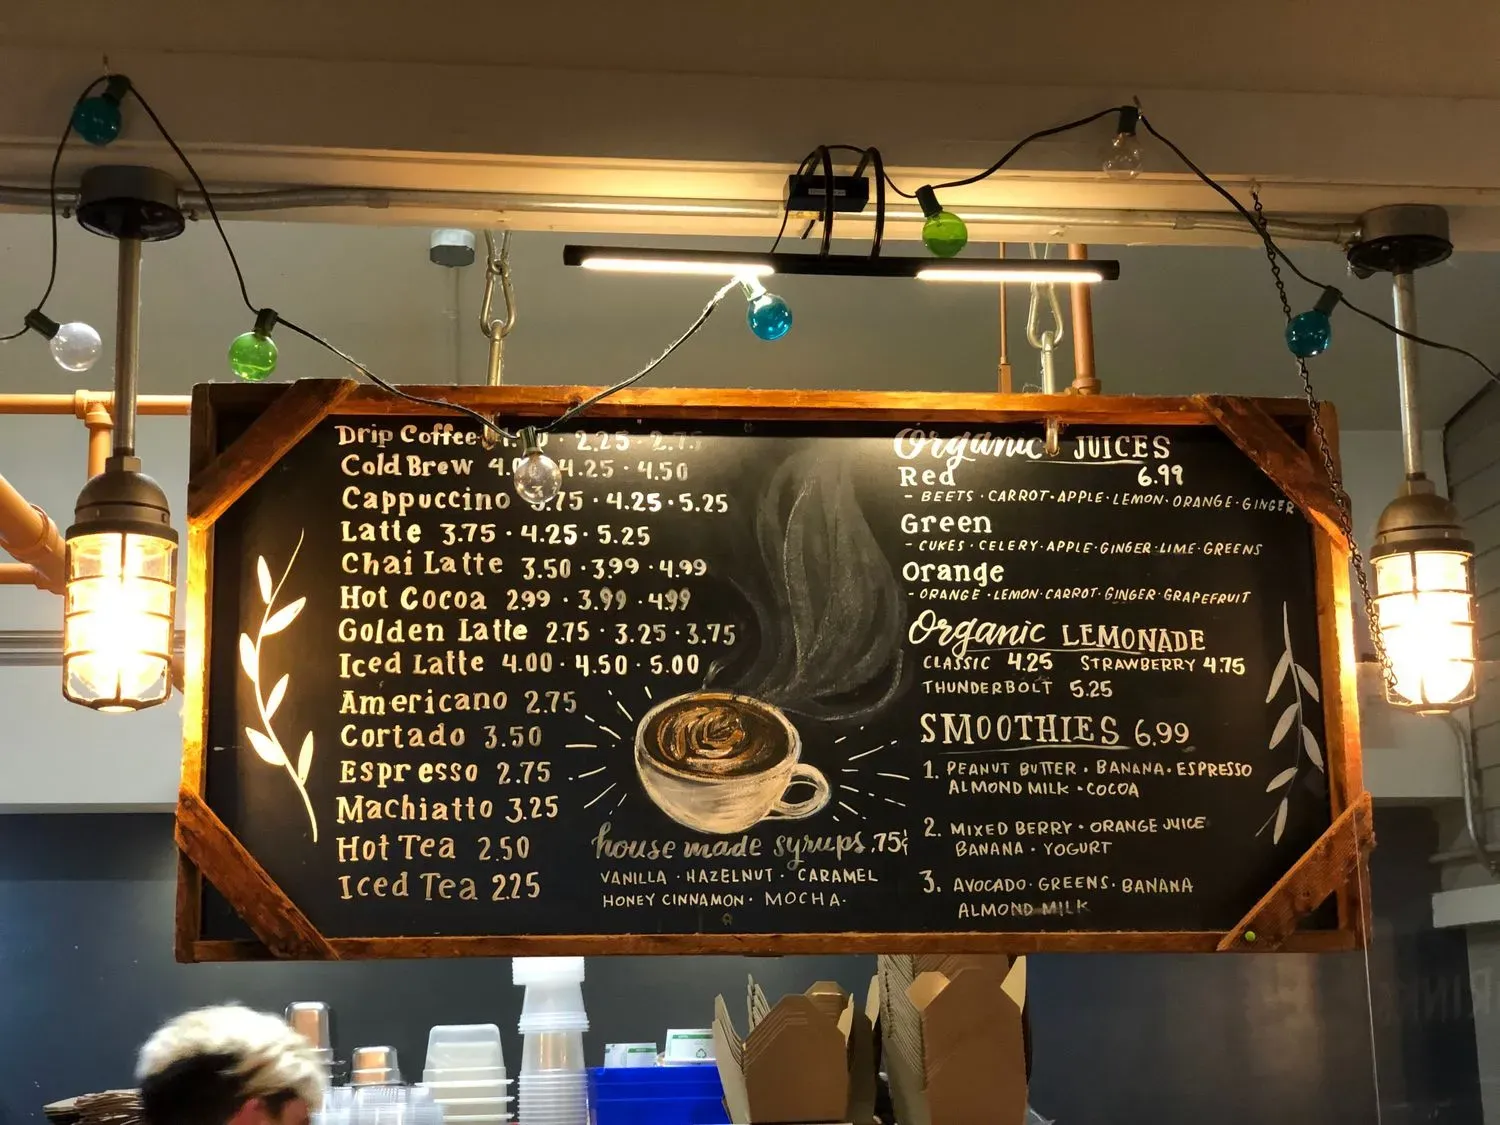 Drip Coffee · 2.25 · 2.75
Cold Brew 4.25 · 4.50
Cappuccino 3.75 · 4.25 · 5.25
Latte 3.75 · 4.25 · 5.25
Chai Latte 3.50 · 3.99 · 4.99
Hot Cocoa 2.99 · 3.99 · 4.99
Golden Latte 2.75 · 3.25 · 3.75
Iced Latte 4.00 · 4.50 · 5.00
Americano 2.75
Cortado 3.50
Espresso 2.75
Machiatto 3.25
Hot Tea 2.50
Iced Tea 2.25
house made syrups .75¢
VANILLA · HAZELNUT · CARAMEL
HONEY CINNAMON · MOCHA ·
Organic JUICES
Red 6.99
- BEETS · CARROT · APPLE · LEMON · ORANGE · GINGER
Green
- CUKES · CELERY · APPLE · GINGER · LIME · GREENS
Orange
- ORANGE · LEMON · CARROT · GINGER · GRAPEFRUIT
Organic LEMONADE
CLASSIC 4.25 STRAWBERRY 4.75
THUNDERBOLT 5.25
SMOOTHIES 6.99
1. PEANUT BUTTER · BANANA · ESPRESSO
ALMOND MILK · COCOA
2. MIXED BERRY · ORANGE JUICE
BANANA · YOGURT
3. AVOCADO · GREENS · BANANA
ALMOND MILK